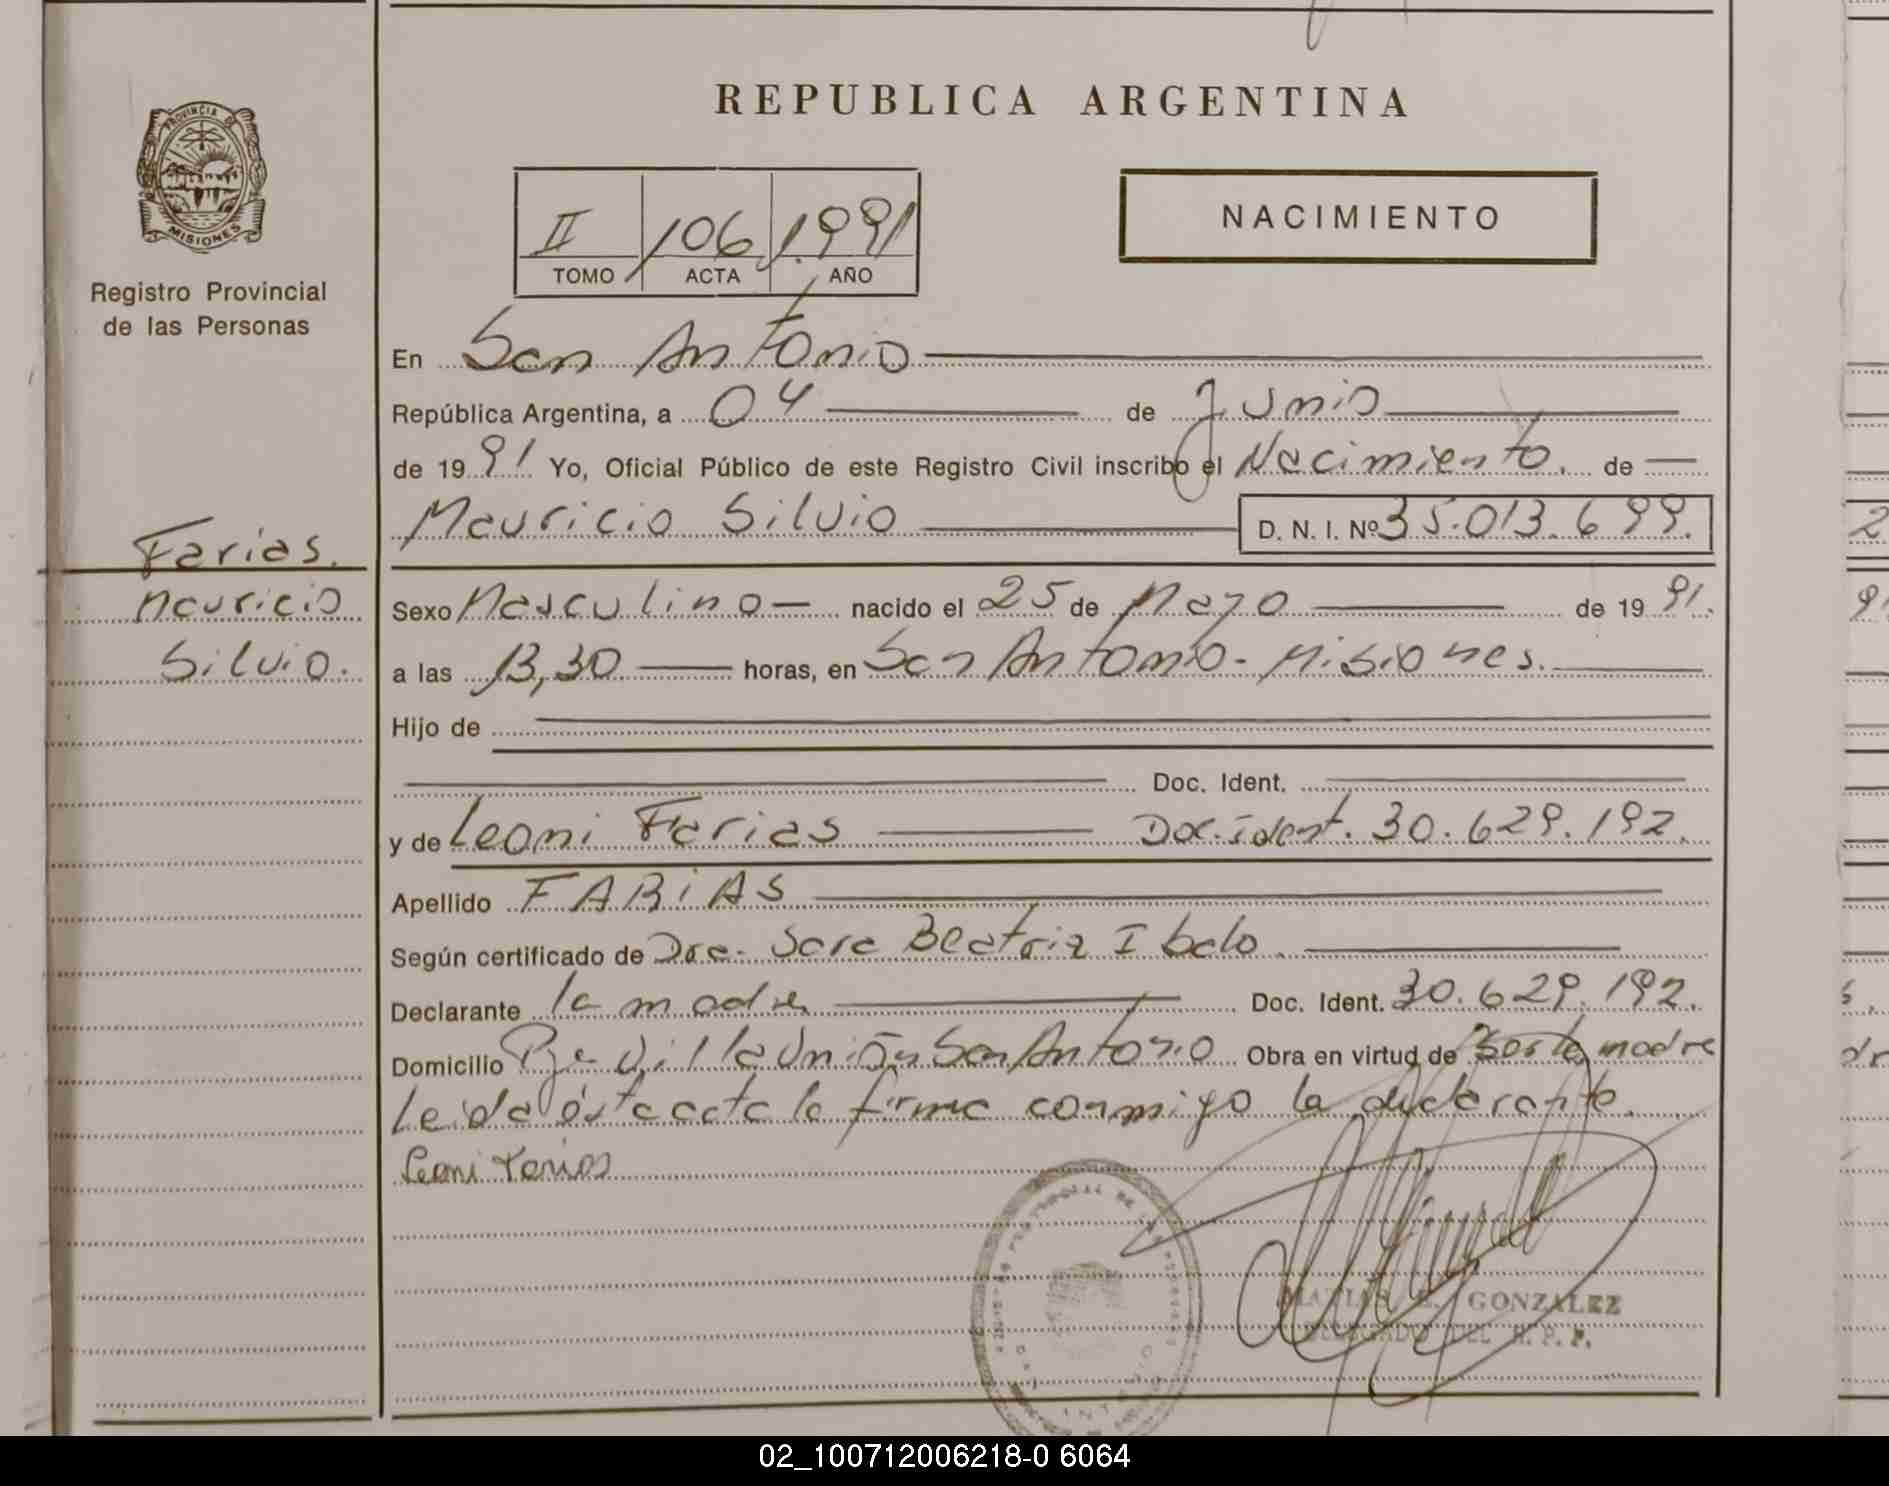 REPUBLICA ARGENTINA
PROVINCIA DE
MISIONES
Registro Provincial
de las Personas
II 106 1.991
TOMO ACTA AÑO
NACIMIENTO
En San Antonio
República Argentina, a 04 de Junio
de 1991 Yo, Oficial Público de este Registro Civil inscribo el Nacimiento. de
Mauricio Silvio D. N. I. Nº 35.013.699.
Farias.
Mauricio
Silvio.
Sexo Masculino nacido el 25 de Mayo de 1991.
a las 13,30 horas, en San Antonio - Misiones.
Hijo de
Doc. Ident.
y de Leoni Farias Doc. ident. 30.629.192.
Apellido FARIAS
Según certificado de Dra. Sara Beatriz
Declarante la madre Doc. Ident. 30.629.192.
Domicilio Villa Unión San Antonio Obra en virtud de madre
Leida ésta acta la firma conmigo la declarante.
Leoni Farias
MATIAS E. GONZALEZ
DELEGADO DEL R. P. P.
02_100712006218-0 6064